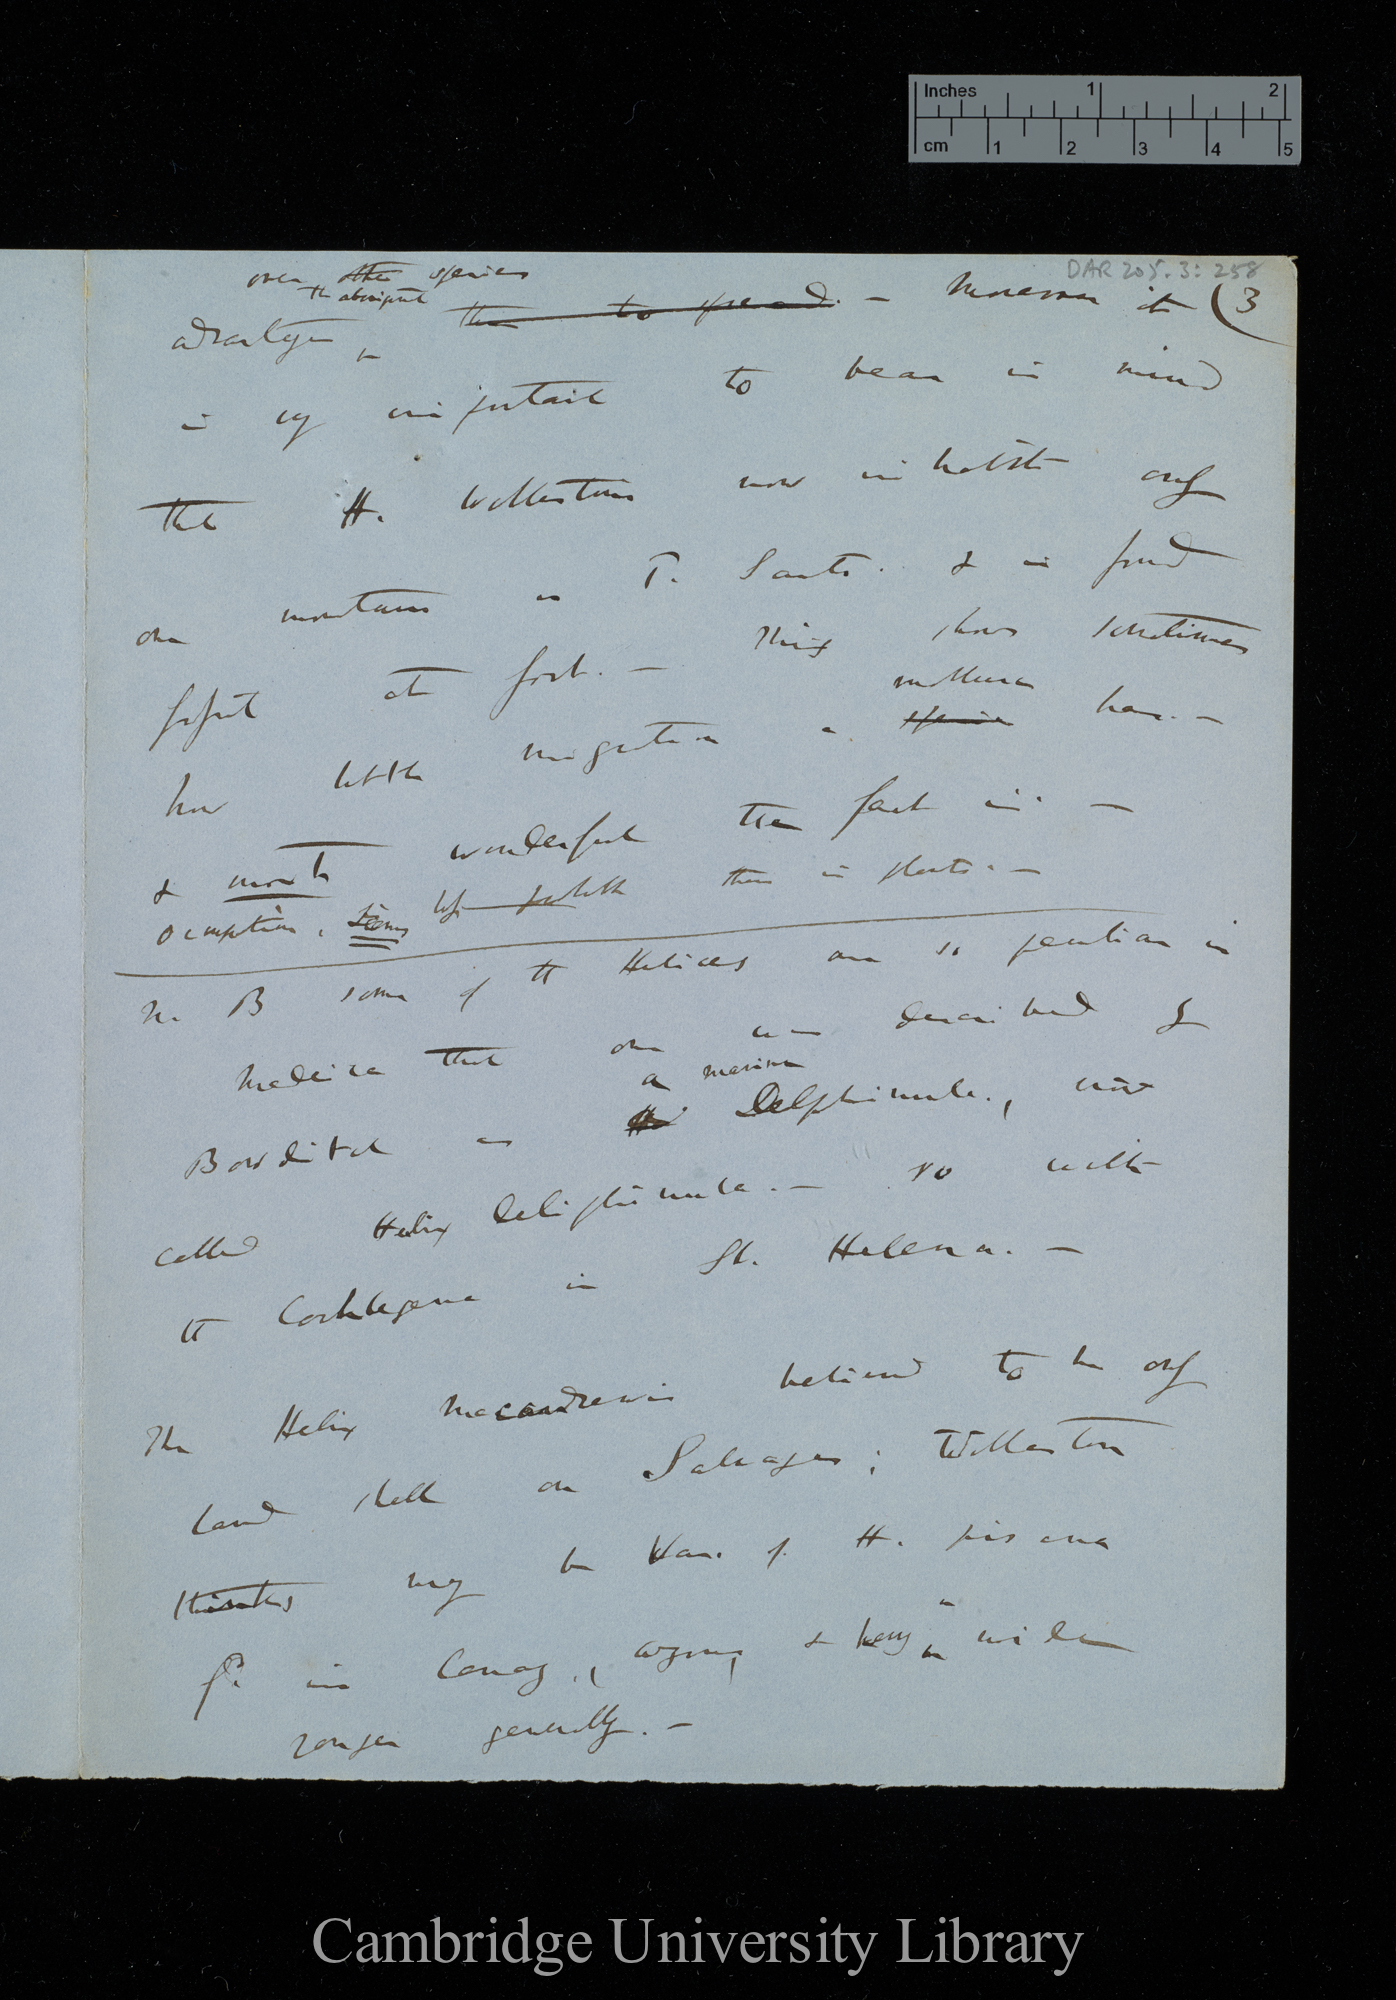 Inches 1 2
cm 1 2 3 4 5
DAR 205.3: 258
(3
over the other species
aboriginal
advantage them to spread. — Moreover it
is very important to bear in mind
that H. Wollastoni now inhabits only
on mountains in P. Santo. & is found
fossil at foot. — This shows sometimes
how little migration a species mollusca has. —
& most wonderful the fact is. —
occupation, seems less probable than in plants. —
N. B some of the Helices are so peculiar in
Madeira that one was described by
Bowditch as a marine Delphinula, now
called Helix delphinula. — so with
the Cochlogena in St. Helena. —
The Helix Macandrewi believed to be only
land shell on Salvages; Wollaston
thinks may be Var. of H. pisana
fd. in Canary, Azores, & being in wider
ranger generally. —
Cambridge University Library